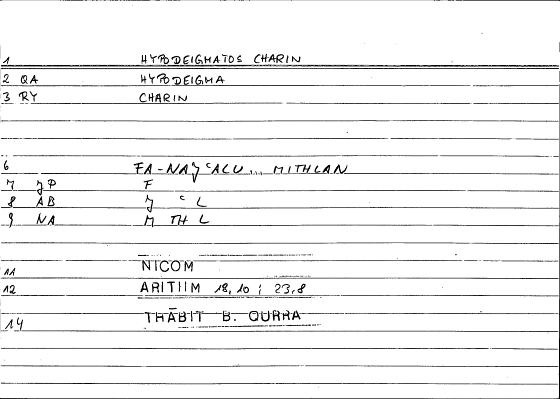 1 HYPODEIGMATOS CHARIN
2 QA HYPODEIGMA
3 RY CHARIN
6 FA-NAǦʿALU... MITHLAN
7 ǦP F
8 AB Ǧ ʿ L
9 NA M TH L
11 NICOM
12 ARITIIM 18,10 ; 23,8
14 THĀBIT B. QURRA